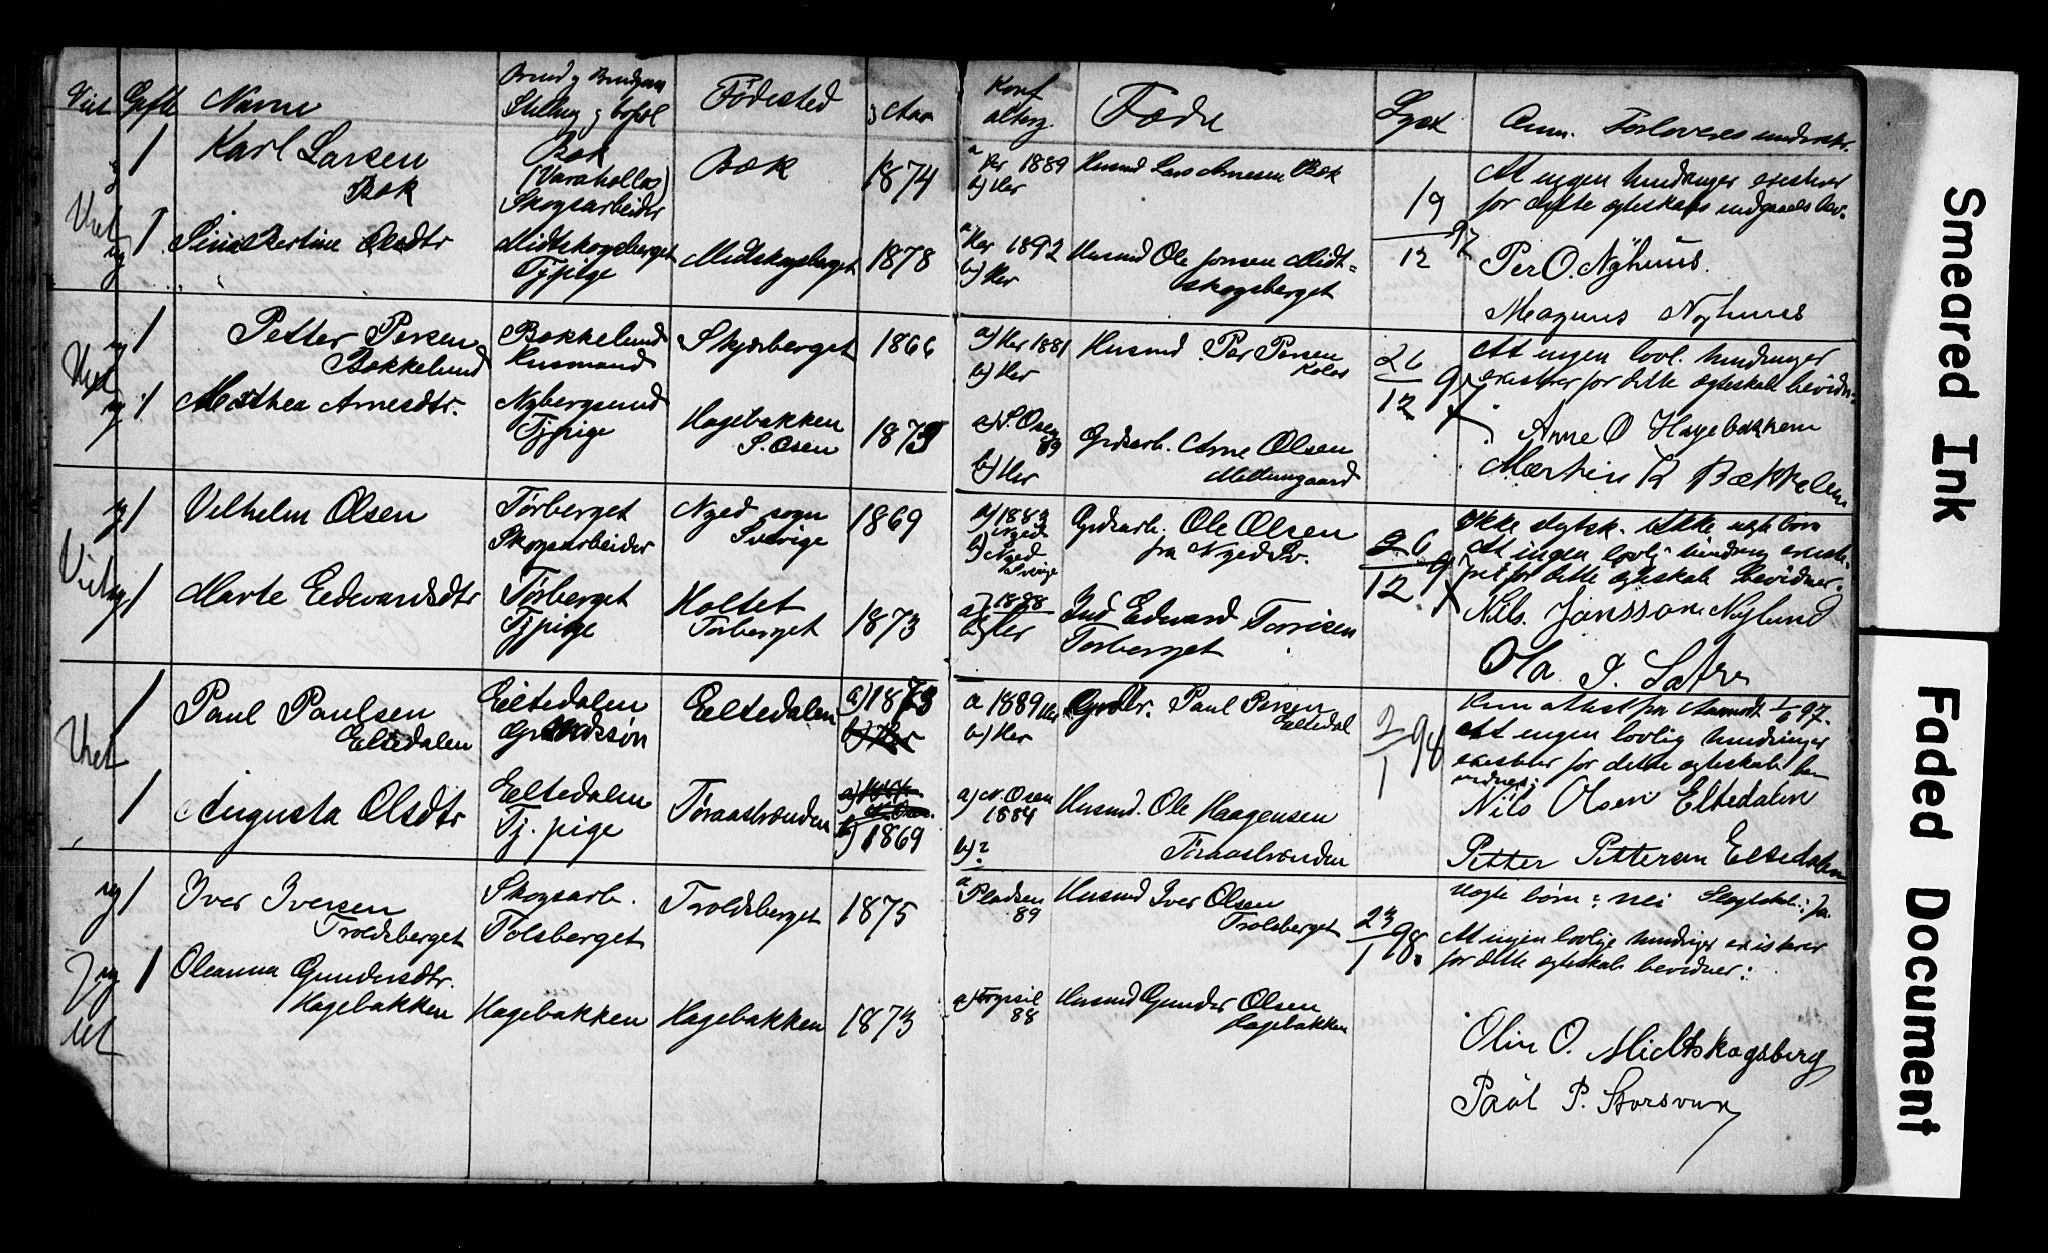 Viet Gifte Navne Brud og Brudgom Stilling og bopæl Fødested Aar Konf alterg. Fædre Lyst Anm. Forloveres underskr.
Viet
ug 1 Karl Larsen
Bæk
Bæk
Skogsarbeider
Bæk
1874
a Her 1889
b) Her
Husmd Lars Arnesen Bæk
19
12 97
At ingen hindringer existerer
for dette ægteskabs indgaaelse bev.
Per O. Nyhuus.
Magnus Nyhuus
ug 1 Bertine Olsdtr
Midtskogsberget
Tjpige
Midtskogsberget
1878
a Her 1892
b) Her
Husmd Ole Jonsen Midt-
skogsberget
Viet
ug 1 Petter Persen
Bækkelund
Bækkelund
Husmand
Skjærberget
1866
a) Her 1881
b) Her
Husmd Per Persen
26
12 97
At ingen lovl. hindringer
existerer for dette ægteskab bevidn-
Arne O Hagebakken
ug 1 Mathea Arnesdtr.
Nybergsund
Tjpige
Hagebakken
S. Osen
1873
a) N. Osen
89
b) Her
Grdsarb. Arne Olsen
Viet
ug 1 Vilhelm Olsen
Tørberget
Skogsarbeider
Nyed sogn
Sverige
1869
a) 1883
Nyed
b) Nyed
Sverige
Grdsarb. Ole Olsen
fra Nyed Sv.
26
12 97
Ikke slgtsk. Ikke uegte børn
At ingen lovlig hindring existe-
rer for dette ægteskab bevidner:
Nils Jansson Nylund
Ola J. Sætre
ug 1 Marte Edevardsdtr
Tørberget
Tjpige
Holtet
Tørberget
1873
a) 1888
b) Her
Ind Edvard Torrisen
Tørberget
Viet
1 Paul Paulsen
Eltedalen
Eltedalen
Grdsøn
Eltedalen
a) 1873
b) Her
a 1889 Her
b) Her
Grdbr. Paul Persen
Eltedal
2
1 98
At ingen lovlig hindringer
existerer for dette ægteskab be-
vidnes:
Nils Olsen Eltedalen
Petter Pettersen Eltedalen
1 Augusta Olsdtr
Eltedalen
Tj. pige
Føraasstranden
b) 1869
a) N. Osen
1884
b) ?
Husmd. Ole Haagensen
Føraasstranden
Viet
ug 1 Iver Iversen
Troldsberget
Skogsarb.
Tolsberget
Troldsberget
1875
a Pladsen
89
Husmd Iver Olsen
Trolsberget
23
1 98.
Uegte børn: nei Slegtskab: ja
At ingen lovlige hindringer existerer
for dette ægteskab bevidner:
Olin O. Midtskogsberg
Paul P. Storsveen
ug 1 Oleanna Gundersdtr.
Hagebakken
Hagebakken
Hagebakken
1873
a) Trysil
88
Husmd Gunder Olsen
Hagebakken
Smeared Ink
Faded Document